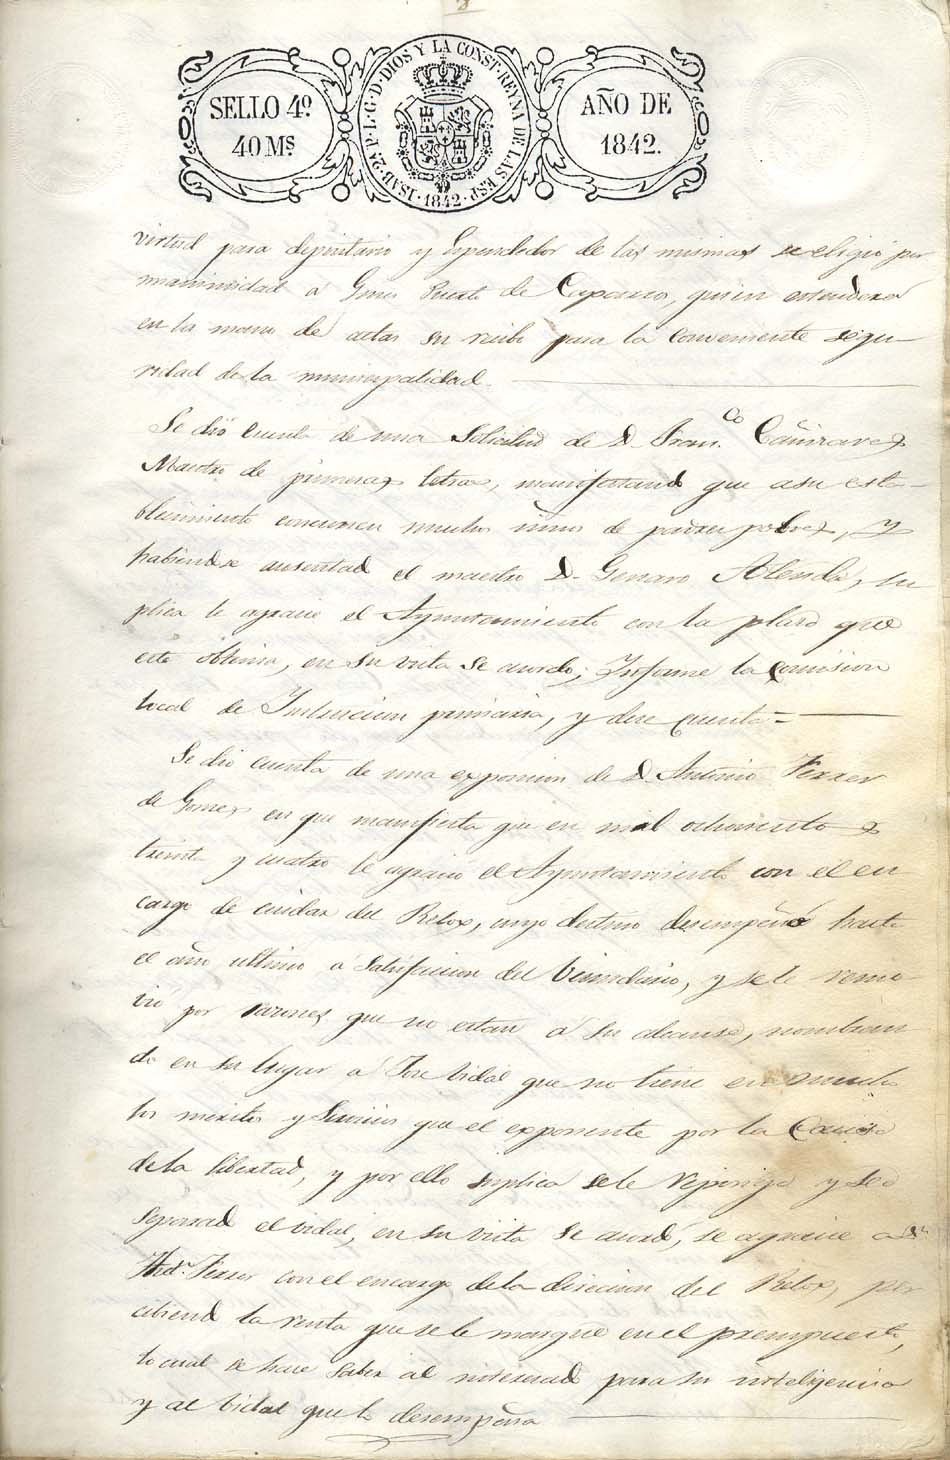 SELLO 4º
40 Mˢ.
ISAB. 2ª P. L. G. D. DIOS Y LA CONST. REYNA DE LAS ESP. 1842
AÑO DE
1842.
virtud para depositario y Espendedor de las mismas se eligió por
unanimidad á Gines de Caparros, quien estendera
en la mano de actas su recibo para la conveniente segu-
ridad de la municipalidad.
Se dió cuenta de una Solicitud de D. Franᶜᵒ Cañizares
Maestro de primeras letras, manifestando que a su esta-
blecimiento concurren muchos niños de padres pobres, y
habiendose ausentado el maestro D. Genaro Alenda, su
plica le agracie el Ayuntamiento con la plaza que
este obtenia, en su vista se acordo; Informe la comision
local de Instruccion primaria, y dese cuenta=
Se dio cuenta de una exposicion de D. Antonio Ferrer
de Gomez en que manifiesta que en mil ochocientos
treinta y cuatro le agració el Ayuntamiento con el en
cargo de cuidar del Relox, cuyo destino desempeñó hasta
el año ultimo á satisfaccion del Vecindario, y se le remo-
vió por razones que no estan á su alcanse, nombran
do en su lugar á Jose Vidal que no tiene en mucho
los meritos y Servicios que el exponente por la Causa
de la libertad, y por ello suplica se le reponga y sea
separado el vidal, en su vista se acordó, se agracie a Dⁿ
Antº Ferrer con el encargo de la direccion del Relox, per
cibiendo la renta que se le marque en el presupuesto,
lo cual se hace saber al interesado para su inteligencia
y al vidal que lo desempeña